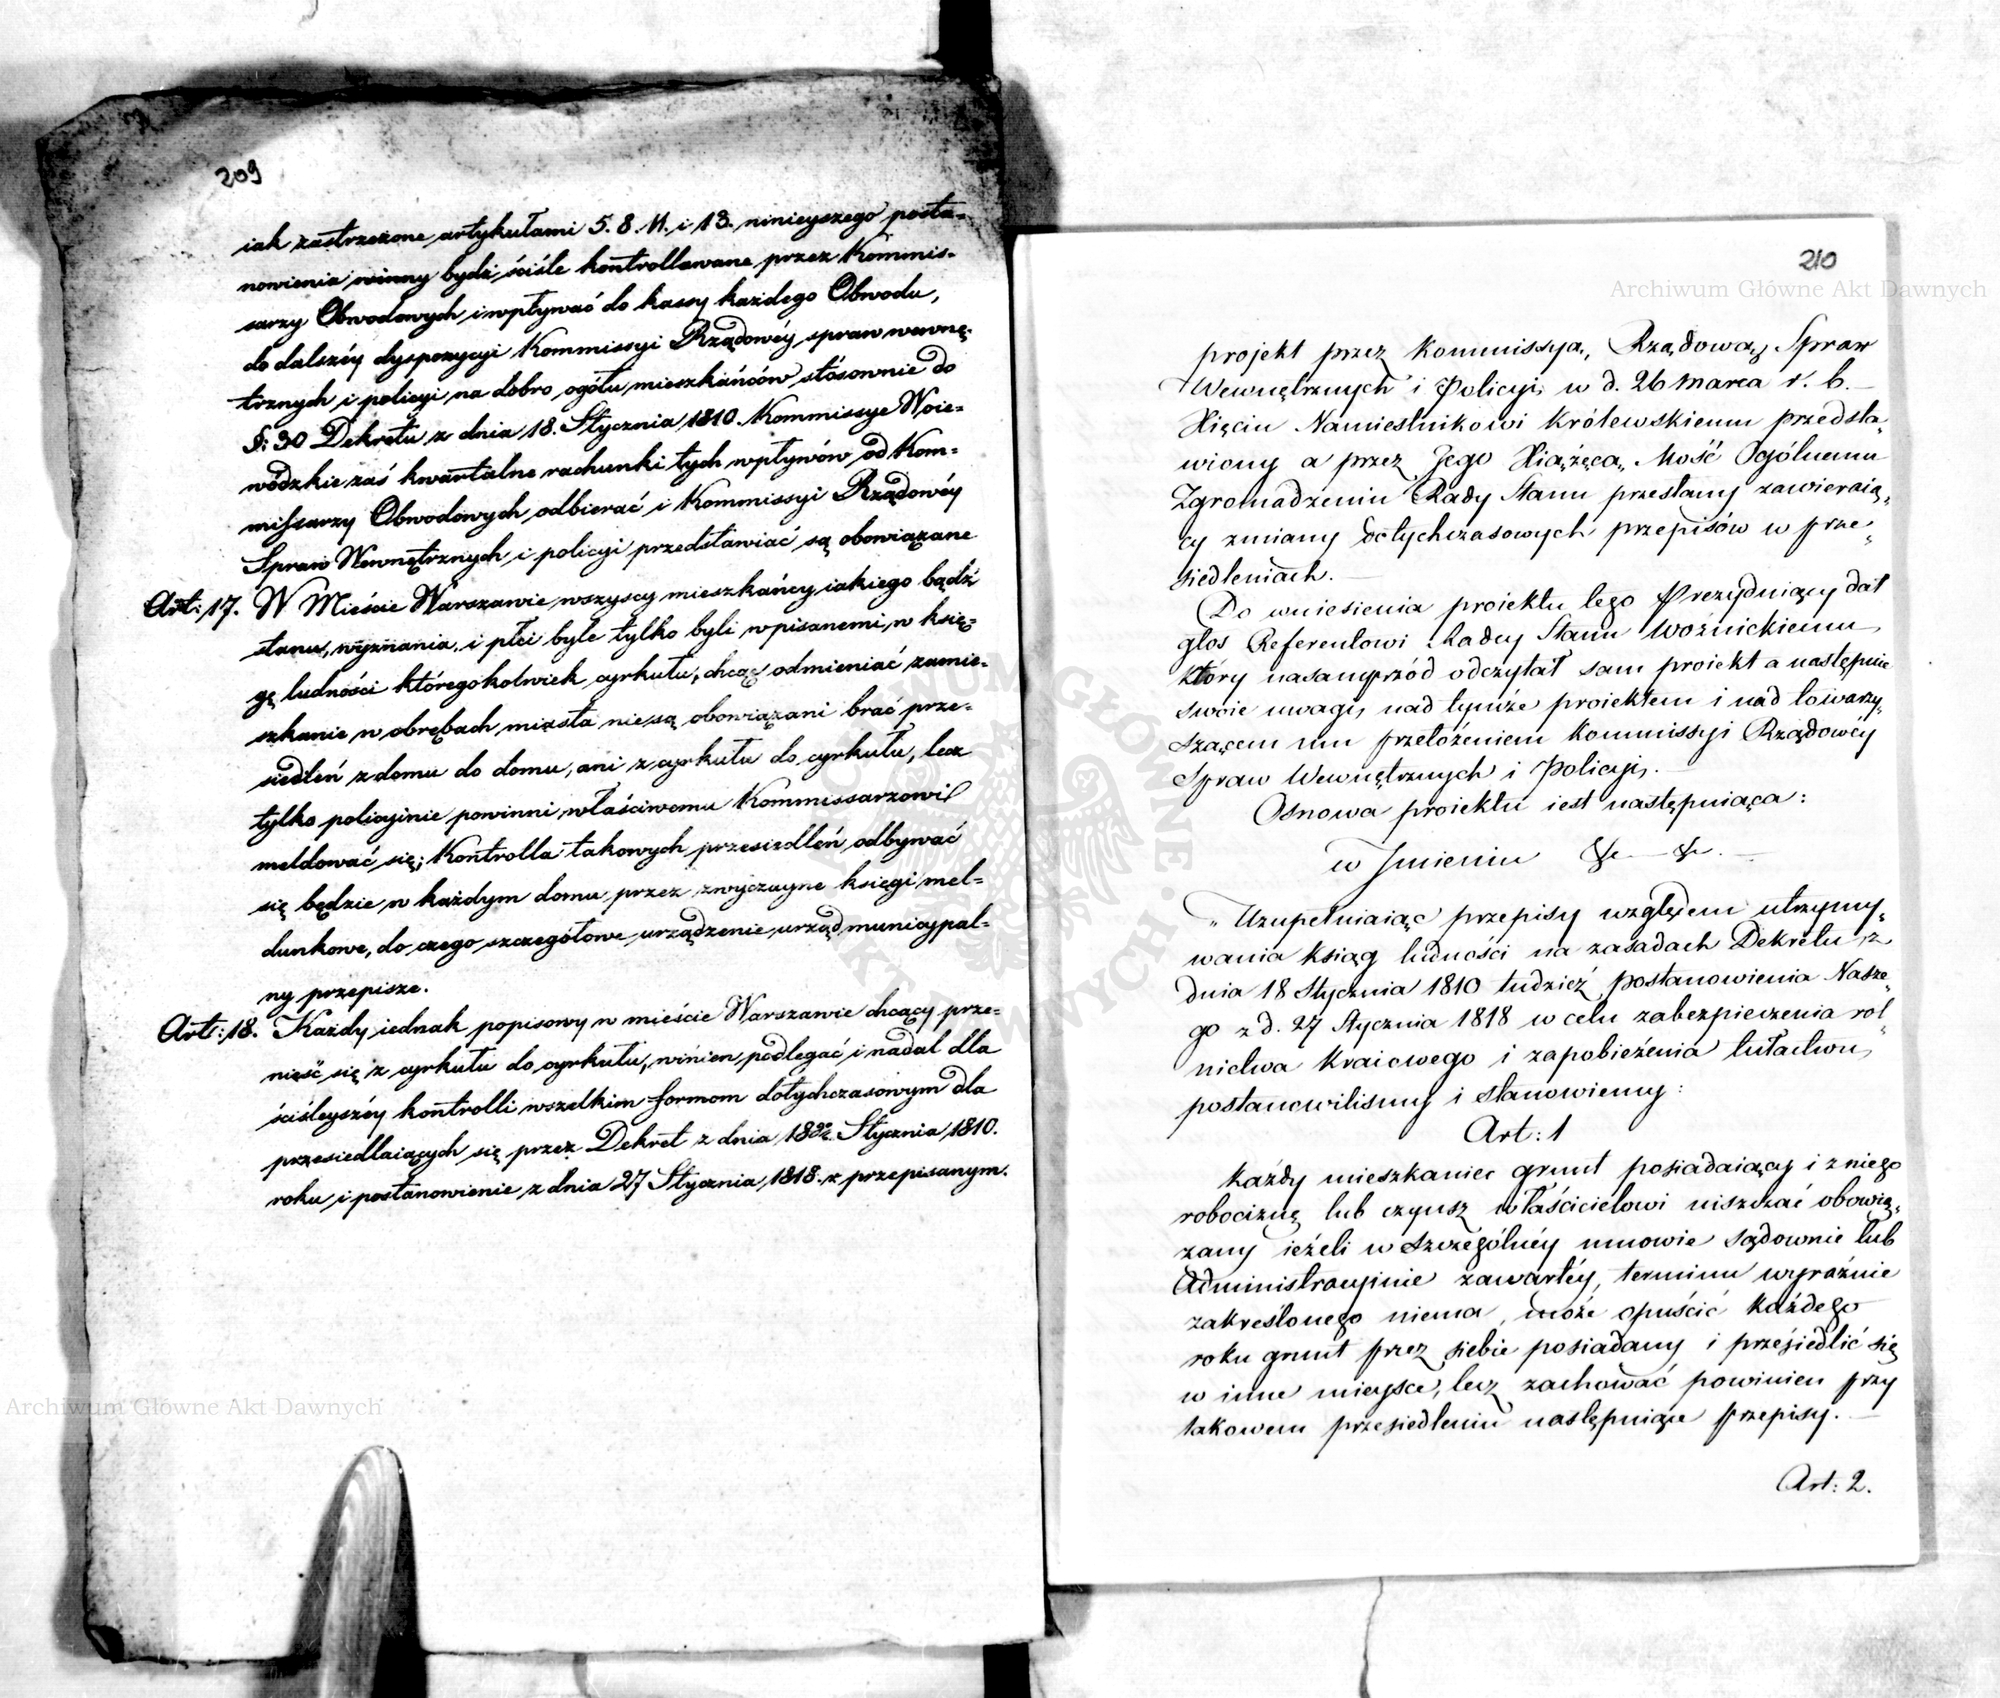 209
iak zastrzeżone artykułami 5. 8. 11. i 13. ninieyszego posta=
nowienia winny bydź ściśle kontrollowane przez Kommis=
sarzy Obwodowych i wpływać do kassy każdego Obwodu,
do dalszéy dyspozycyi Kommissyi Rządowéy spraw wewnę=
trznych i policyi na dobro ogółu mieszkańców stósownie do
§: 30 Dekretu z dnia 18. Stycznia 1810. Kommissye Woie=
wódzkie zaś kwartalne rachunki tych wpływów od Kom=
missarzy Obwodowych odbierać i Kommissyi Rządowéy
Spraw Wewnętrznych i policyi przedstawiać są obowiązane
Art: 17. W Mieście Warszawie wszyscy mieszkańcy iakiego bądź
stanu, wyznania, i płci byle tylko byli wpisanemi w księ=
gę ludności któregokolwiek cyrkułu, chcąc odmieniać zamie=
szkanie w obrębach miasta nie są obowiązani brać prze=
siedleń z domu do domu, ani z cyrkułu do cyrkułu, lecz
tylko policyinie powinni właściwemu Kommissarzowi
meldować się; Kontrolla takowych przesiedleń odbywać
się będzie w każdym domu przez zwyczayne księgi mel=
dunkowe, do czego szczegółowe urządzenie urząd municypal=
ny przepisze.
Art: 18. Każdy iednak popisowy w mieście Warszawie chcący prze=
nieść się z cyrkułu do cyrkułu, winien podlegać i nadal dla
ściśleyszéy kontrolli wszelkim formom dotychczasowym dla
przesiedlaiących się przez Dekret z dnia 18 Stycznia 1810.
roku i postanowienie z dnia 27 Stycznia 1818. r przepisanym.
210
Archiwum Główne Akt Dawnych
projekt przez Kommissyą Rządową Spraw
Wewnętrznych i Policyi w d. 26 marca r. b.
Xięciu Namiestnikowi Królewskiemu przedsta„
wiony a przez Jego Xiążęcą Mość Ogólnemu
Zgromadzeniu Rady Stanu przesłany zawieraią„
cy zmiany dotychczasowych przepisów w prze„
siedleniach.
Do wniesienia proiektu tego Prezyduiący dał
głos Referentowi Radcy Stanu Woźnickiemu
który nasamprzód odczytał sam proiekt a następnie
swoie uwagi nad tymże proiektem i nad towarzy„
szącem mu przełożeniem Kommissyi Rządowéy
Spraw Wewnętrznych i Policyi.
Osnowa proiektu iest następuiąca:
w Jmieniu & &.
„Uzupełniaiąc przepisy względem utrzymy„
wania ksiąg ludności na zasadach Dekretu z
dnia 18 Stycznia 1810 tudzież postanowienia Nasze„
go z d. 27 Stycznia 1818 w celu zabezpieczenia rol„
nictwa kraiowego i zapobieżenia tułactwu
postanowiliśmy i stanowiemy:
Art: 1
Każdy mieszkaniec grunt posiadaiący i z niego
robociznę lub czynsz właścicielowi uiszczać obowią„
zany ieżeli w szczególnéy umowie sądownie lub
Administracyinie zawartéy, terminu wyraźnie
zakreślonego niema, może opuścić każdego
roku grunt przez siebie posiadany i przesiedlić się
w inne mieysce, lecz zachować powinien przy
takowem przesiedleniu następuiące przepisy.
Art: 2.
Archiwum Główne Akt Dawnych
ARCHIWUM GŁÓWNE AKT DAWNYCH